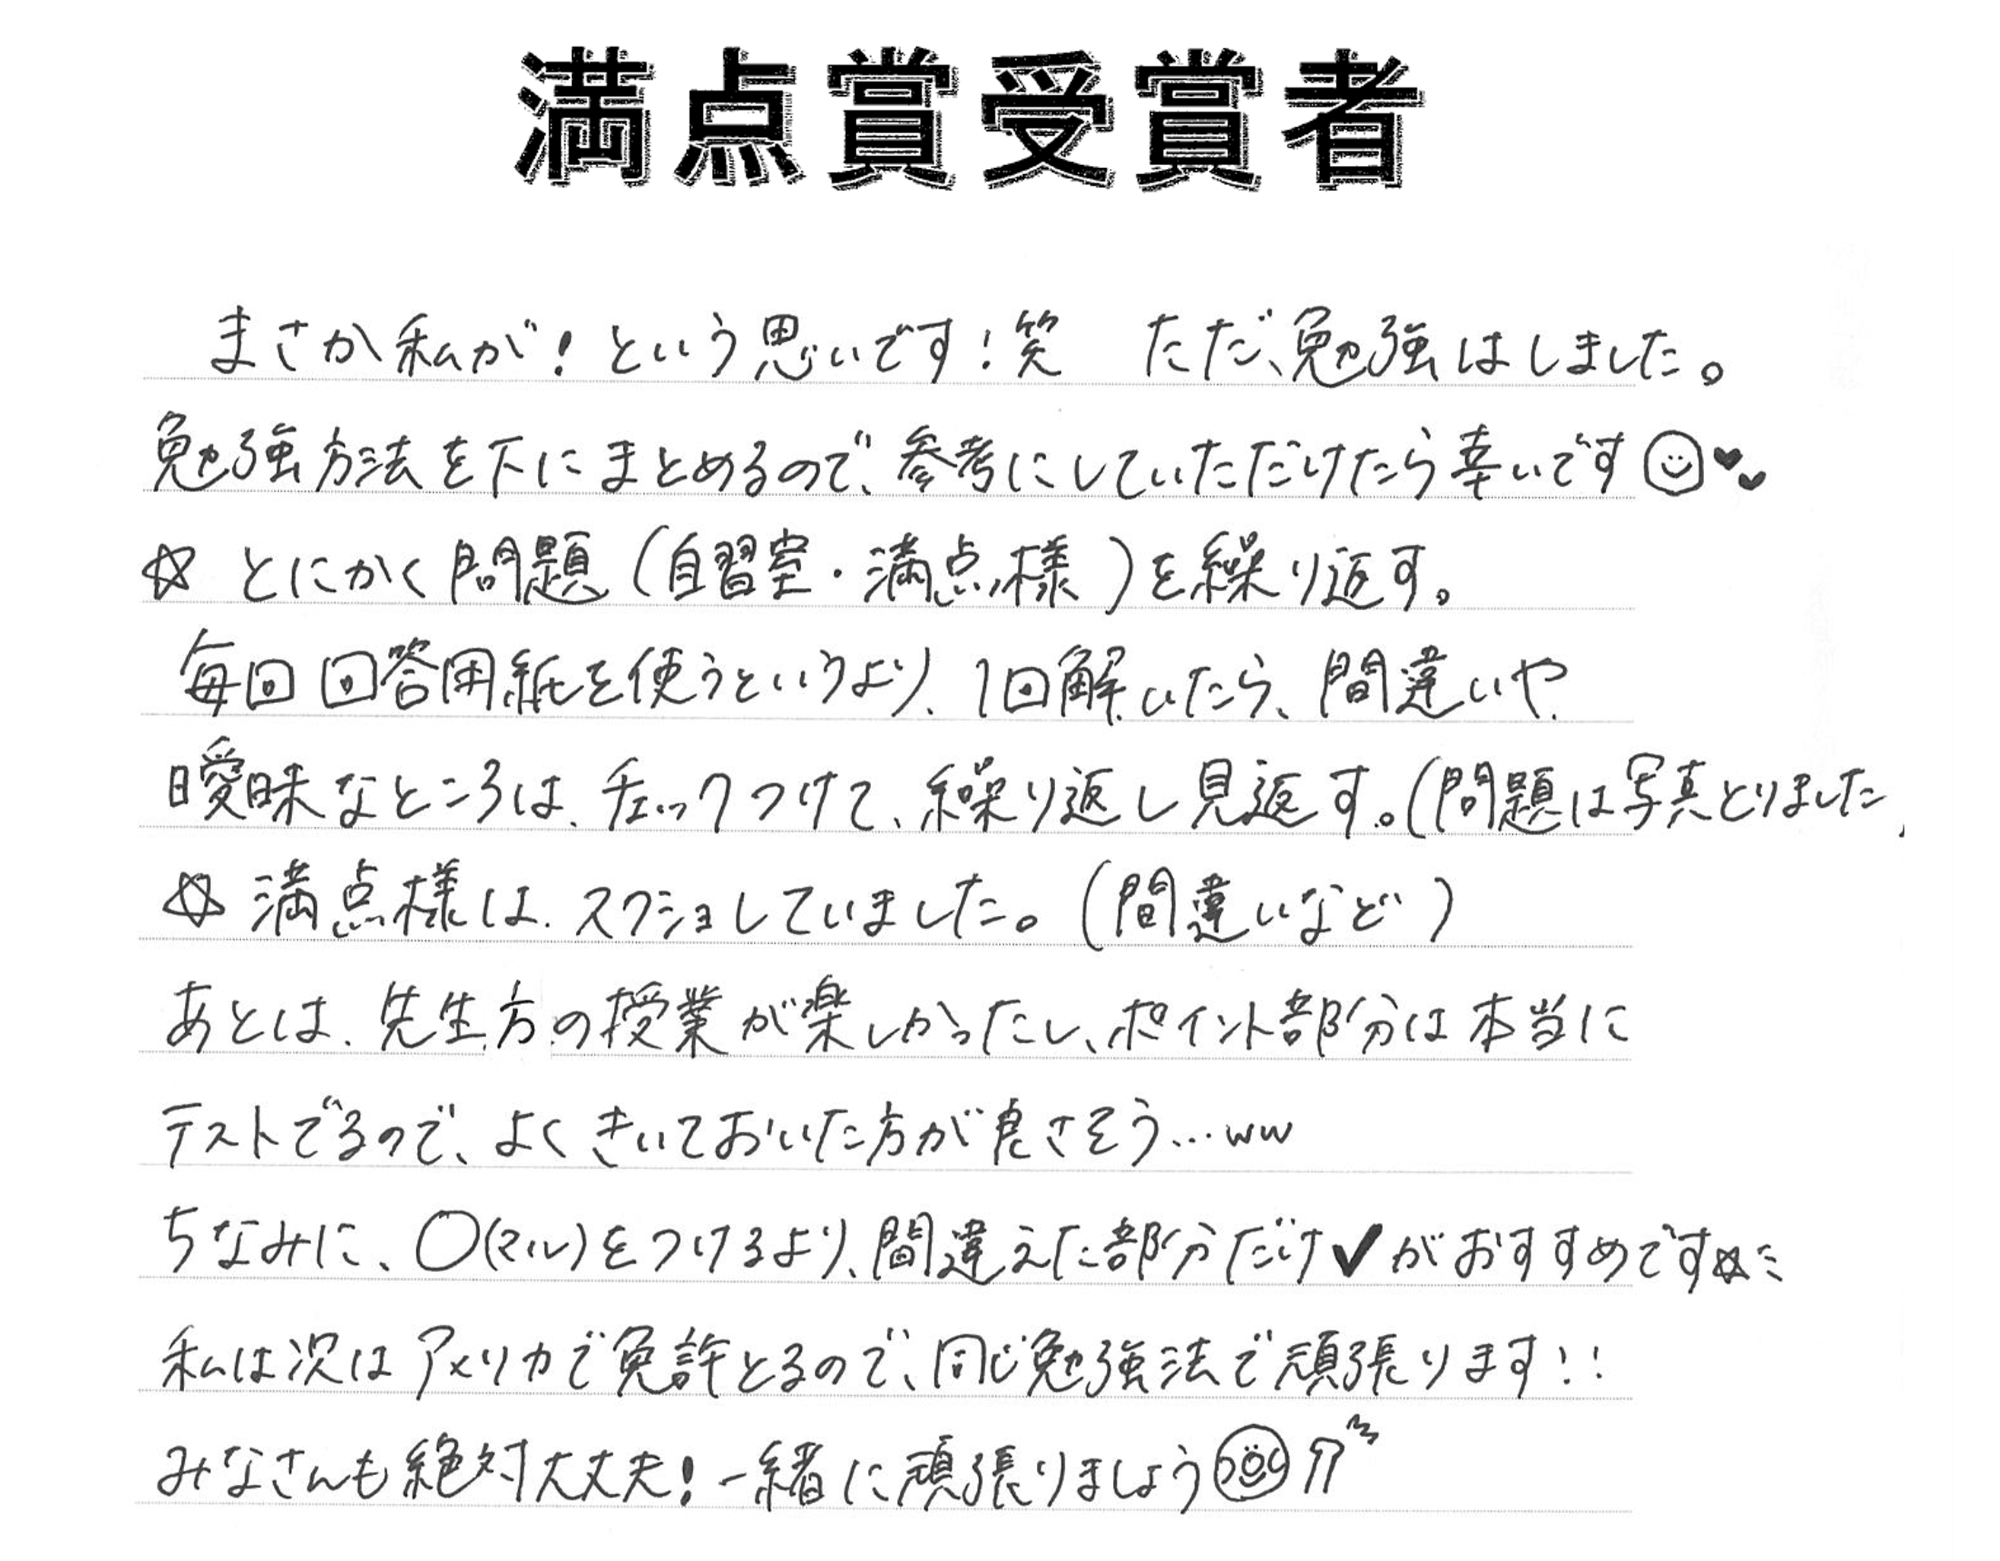 満点賞受賞者
まさか私が！という思いです！笑　ただ、勉強はしました。
勉強方法を下にまとめるので、参考にしていただけたら幸いです
☆ とにかく問題（自習室・満点様）を繰り返す。
毎回回答用紙を使うというより、1回解いたら、間違いや、
曖昧なところは、チェックつけて、繰り返し見返す。（問題は写真とりました
☆ 満点様は、スクショしていました。（間違いなど）
あとは、先生方の授業が楽しかったし、ポイント部分は本当に
テストでるので、よくきいておいた方が良さそう…ww
ちなみに、〇(マル)をつけるより、間違えた部分だけ✓がおすすめです☆
私は次はアメリカで免許とるので、同じ勉強法で頑張ります！！
みなさんも絶対大丈夫！一緒に頑張りましょう